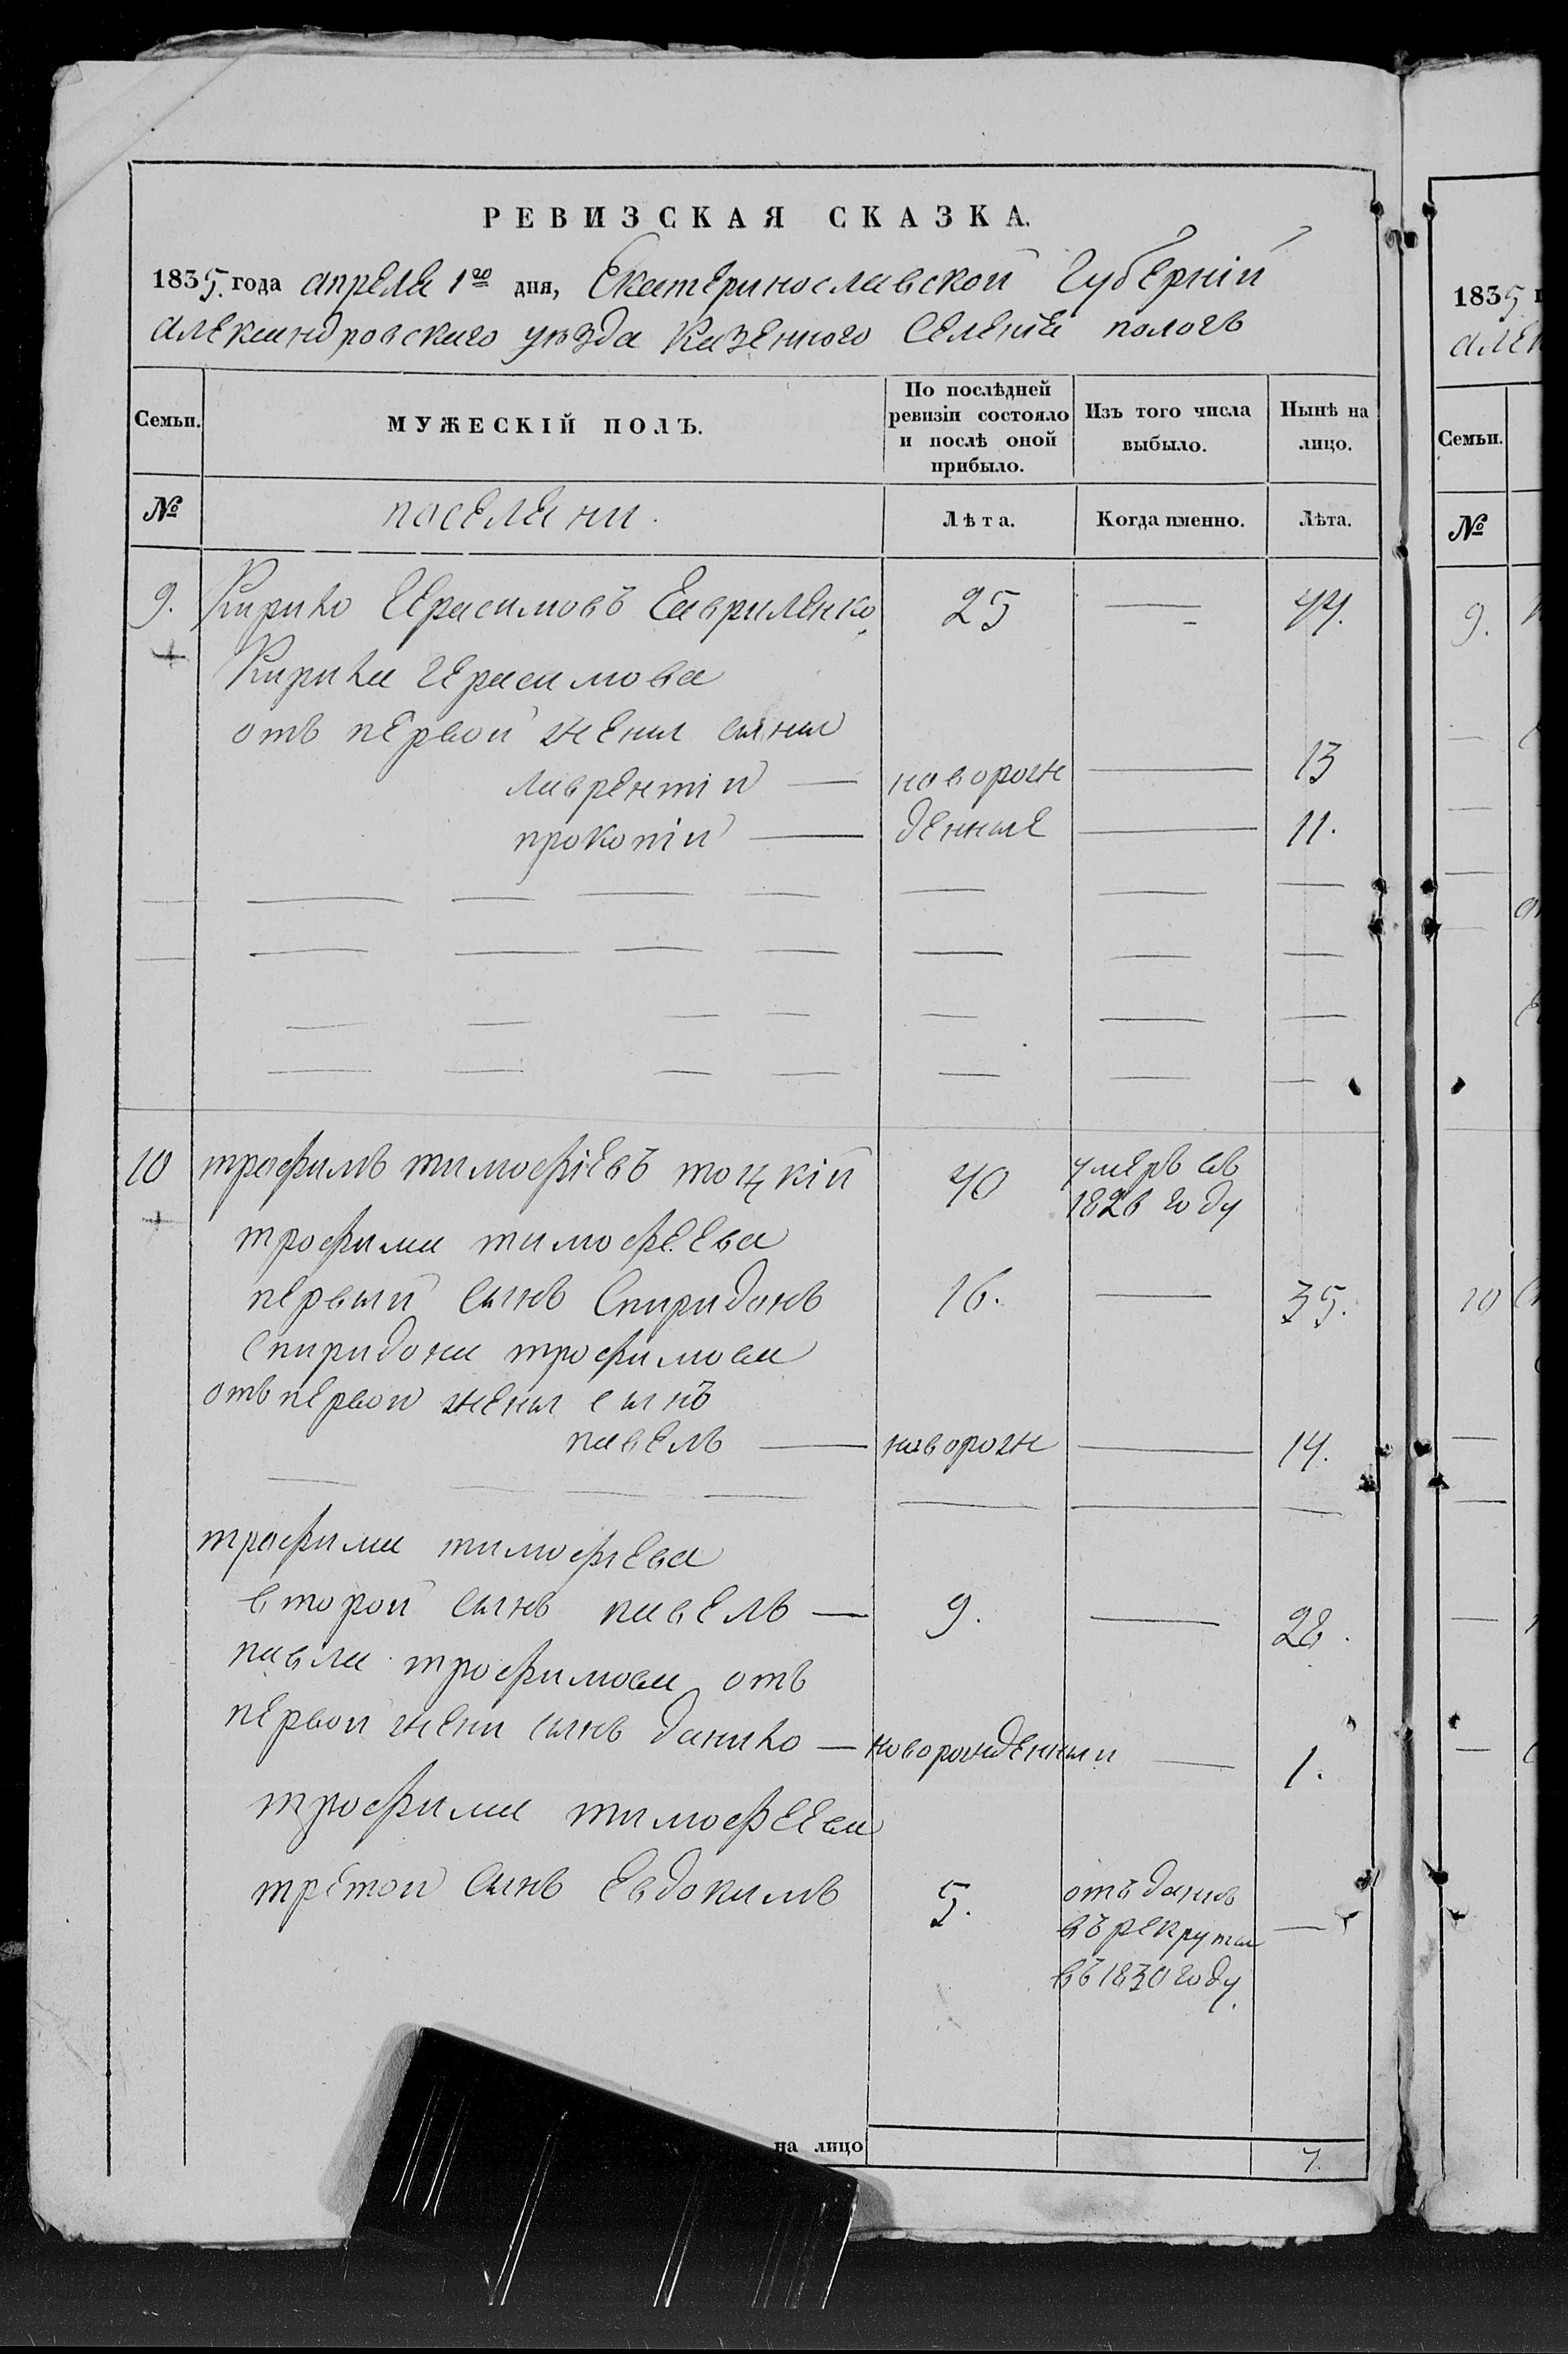 РЕВИЗСКАЯ СКАЗКА.
1835. года апреля 1го дня, Екатеринославской Губерніи
александровскаго уѣзда Казенного Селенія пологъ
Семьи. МУЖЕСКІЙ ПОЛЪ. По послѣдней ревизіи состояло и послѣ оной прибыло. Изъ того числа выбыло. Нынѣ на лицо.
№ поселяни. Лѣта. Когда именно. Лѣта.
9. Кирило Герасимовъ Гавриленко 25 — 44.
Кирила Герасимова
отъ первой жены сыны
лаврентій —новорож — 13
прокопій — денные — 11.
10 трофимъ тимофіевъ тоцкій 40 умеръ въ 1826 году
трофима тимофеева
первый сынъ Спиридонъ 16. — 35.
Спиридона трофимова
отъ первой жены сынъ
павелъ — новорож — 14.
трофима тимофіева
второй сынъ павелъ — 9. — 28.
павла трофимова отъ
первой жени сынъ данило — новорожденный — 1.
трофима тимофеева
третой сынъ Евдокимъ 5. отъданъ —
въ рекруты
въ 1830 году.
на лицо 7.
1835
алек
Семьи.
№
9.
10